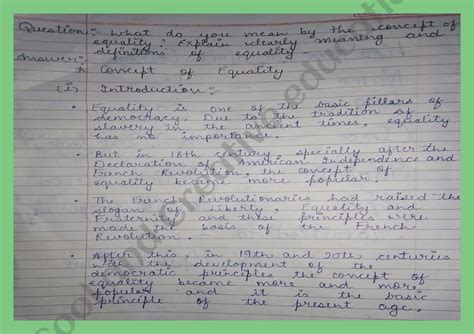 Question:- What do you mean by the concept of
equality? Explain clearly meaning and
definitions of equality
Answer:-
* Concept of Equality
(i) Introduction:-
• Equality is one of the basic pillars of
democracy. Due to the tradition of
slavery in the ancient times, equality
has no importance.
• But in 18th century, specially after the
Declaration of American Independence and
French Revolution, the concept of
equality became more popular.
• The French Revolutionaries had raised the
slogan of Liberty, Equality and
Fraternity and these principles were
made the basis of the French
Revolution.
• After this, in 19th and 20th centuries
with the development of the
democratic principles the concept of
equality became more and more
popular and it is the basic
principle of the present age.